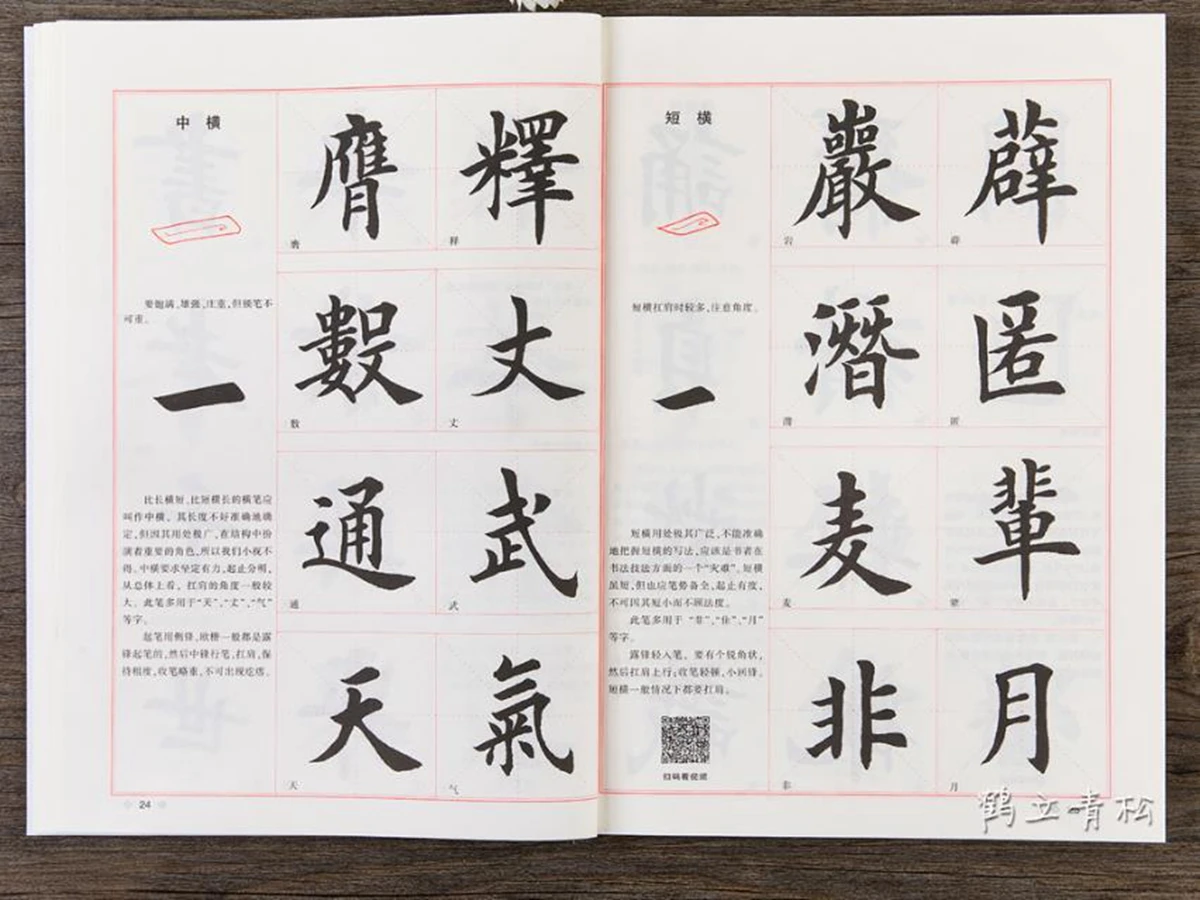 中横
要饱满、雄强、庄重,但顿笔不
可重。
一
比长横短、比短横长的横笔应
叫作中横。其长度不好准确地确
定,但因其用处极广,在结构中扮
演着重要的角色,所以我们小视不
得。中横要求坚定有力,起止分明,
从总体上看,扛肩的角度一般较
大。此笔多用于“天”、“丈”、“气”
等字。
起笔用侧锋,欧楷一般都是露
锋起笔的,然后中锋行笔,扛肩,保
持相度,收笔略重,不可出现疙瘩。
膺 釋
膺 释
數 丈
数 丈
通 武
通 武
天 氣
天 气
24
短横
短横扛肩时较多,注意角度。
一
短横用处极其广泛,不能准确
地把握短横的写法,应该是书者在
书法技法方面的一个“灾难”。短横
虽短,但也应笔势备全,起止有度,
不可因其短小而不顾法度。
此笔多用于“非”、“佳”、“月”
等字。
露锋轻入笔。要有个锐角状,
然后扛肩上行;收笔轻顿,小回锋。
短横一般情况下都要扛肩。
扫码看视频
巖 薛
岩 薛
潛 匿
潜 匿
麦 輩
麦 辈
非 月
非 月
鹤立青松